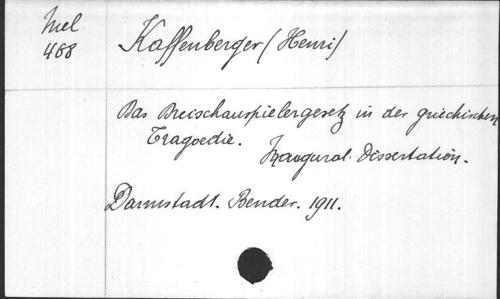 Mel
468
Kaffenberger (Henri)
Das Dreischauspielergesetz in der griechischen
Tragoedie.
Inaugural-Dissertation.
Darmstadt. Bender. 1911.